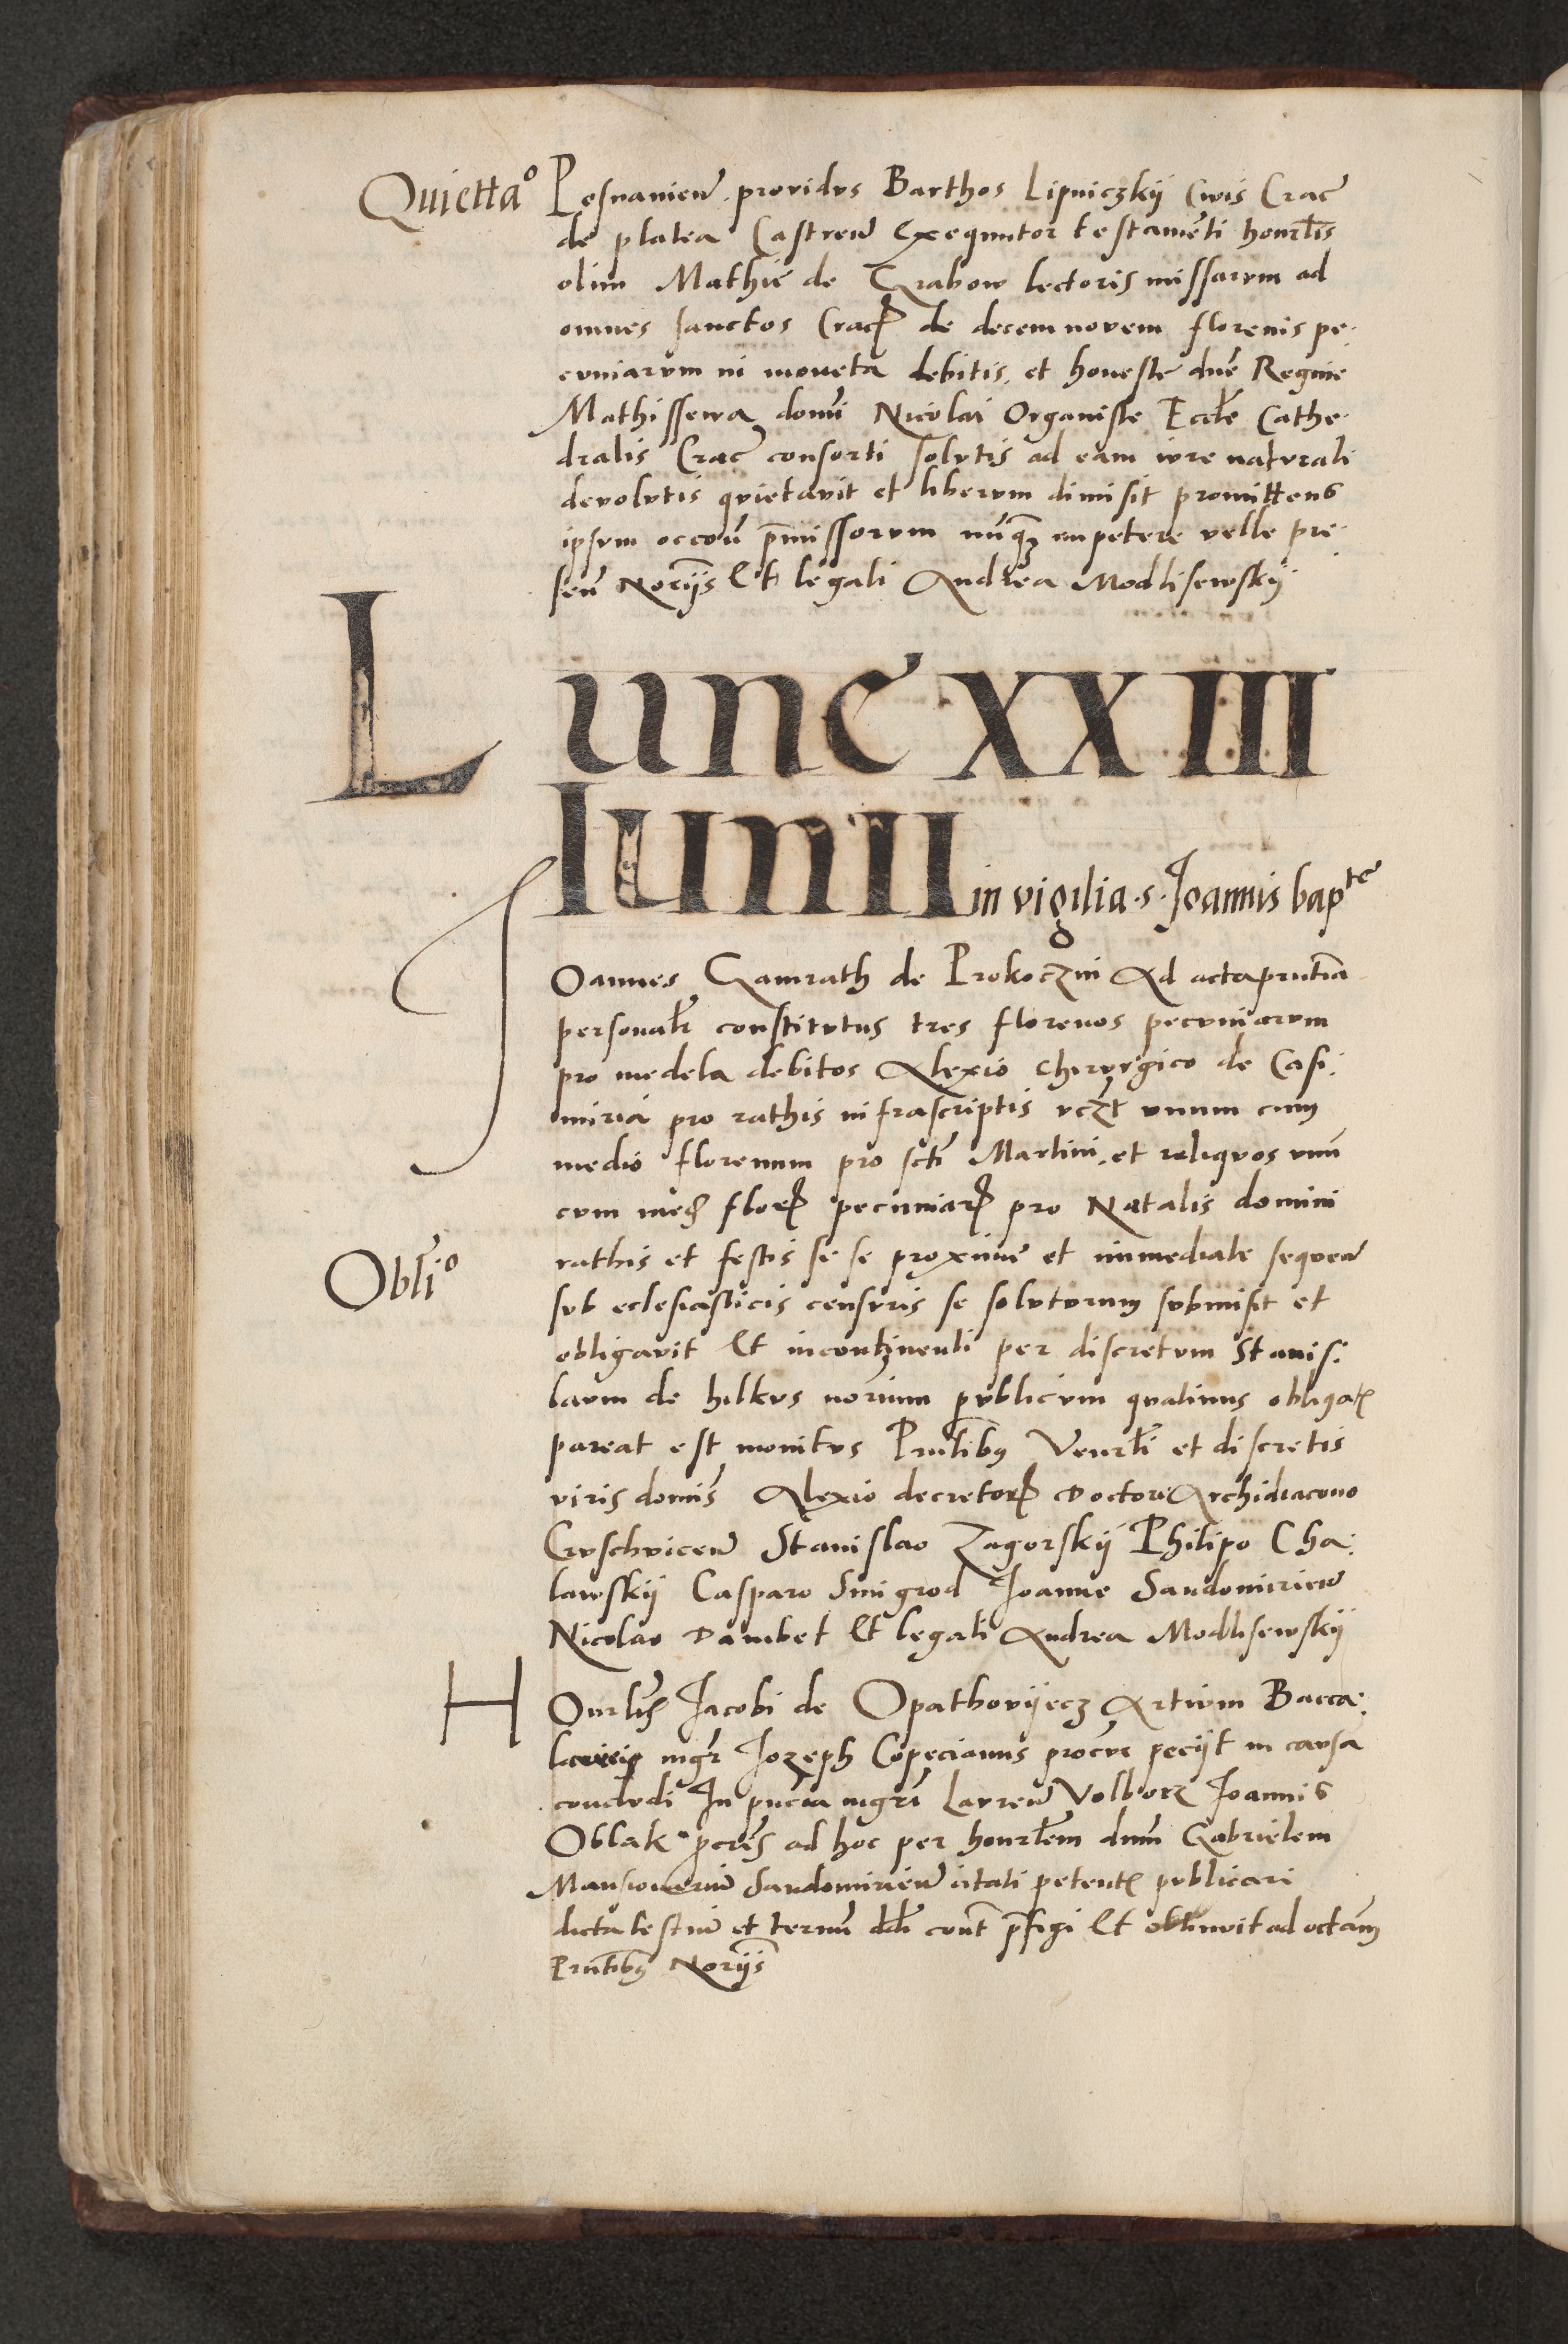 Quietta°
Posnanien̄. providus Barthos Lipniczkÿ Civis Crac̄
de platea Castren̄ Exequutor testamēti honrl̄is
olim Mathie de Grabow lectoris missarum ad
omnes sanctos Crac̄ de decem novem florenis pe-
cuniarum in moneta debitis. et honeste dn̄e Regine
Mathissewa domī Nicolai Organiste Eccl̄e Cathe-
dralis Crac̄ consorti solutis ad eam iure naturali
devolutis quietavit et liberum dimisit promittens
ipsum occōn p̄missorum nūq̄ɜ impetere velle pre-
sen̄ Nor̄ijs Et legali Andrea Modlisewskÿ
Lune XXIII
Iunii in vigilia·s·Joannis bapte
JOannes Gamrath de Prokoczin Ad acta prn̄tia
personal̄r constitutus tres florenos pecuniarum
pro medela debitos Alexio chirurgico de Casi:
miria pro rathis infrascriptis vcz̄t unum cum
medio florenum pro sct̄i Martini. et reliquos unū
cum med̄ flor̄ pecuniar̄ pro Natalis domini
Obl̄i°
rathis et festis se se proxime et immediate sequen̄
sub eclesiasticis censuris se soluturum submisit et
obligavit Et incontinenti per discretum Stanis:
laum de hilkus norium publicum quatinus obligat̄
pareat est monitus Prn̄tibus Venrl̄i et discretis
viris domīs Alexio decretor̄ Doctore Archidiacono
Cruschvicen̄ Stanislao Zagorskÿ Philipo Cha:
lawskÿ Casparo Smigrod Joanne Sandomirien̄
Nicolao Dambet Et legali Andrea Modlisewskÿ
HOnrl̄is Jacobi de Opathovÿecz Artium Bacca:
laurei mgr̄ Jozeph Copecianus procur̄ peciit in causa
concludi In pn̄cia mgrī Lauren̄ Volborz Joannis
Oblak procris̄ ad hoc per honrl̄em dnm̄ Gabrielem
Mansionariū Sandomirien̄ citati petent̄ publicari
dicta testiū et termū dd̄i cont̄ p̄figi Et obtinuit ad octām
Prn̄tibus Nor̄ijs